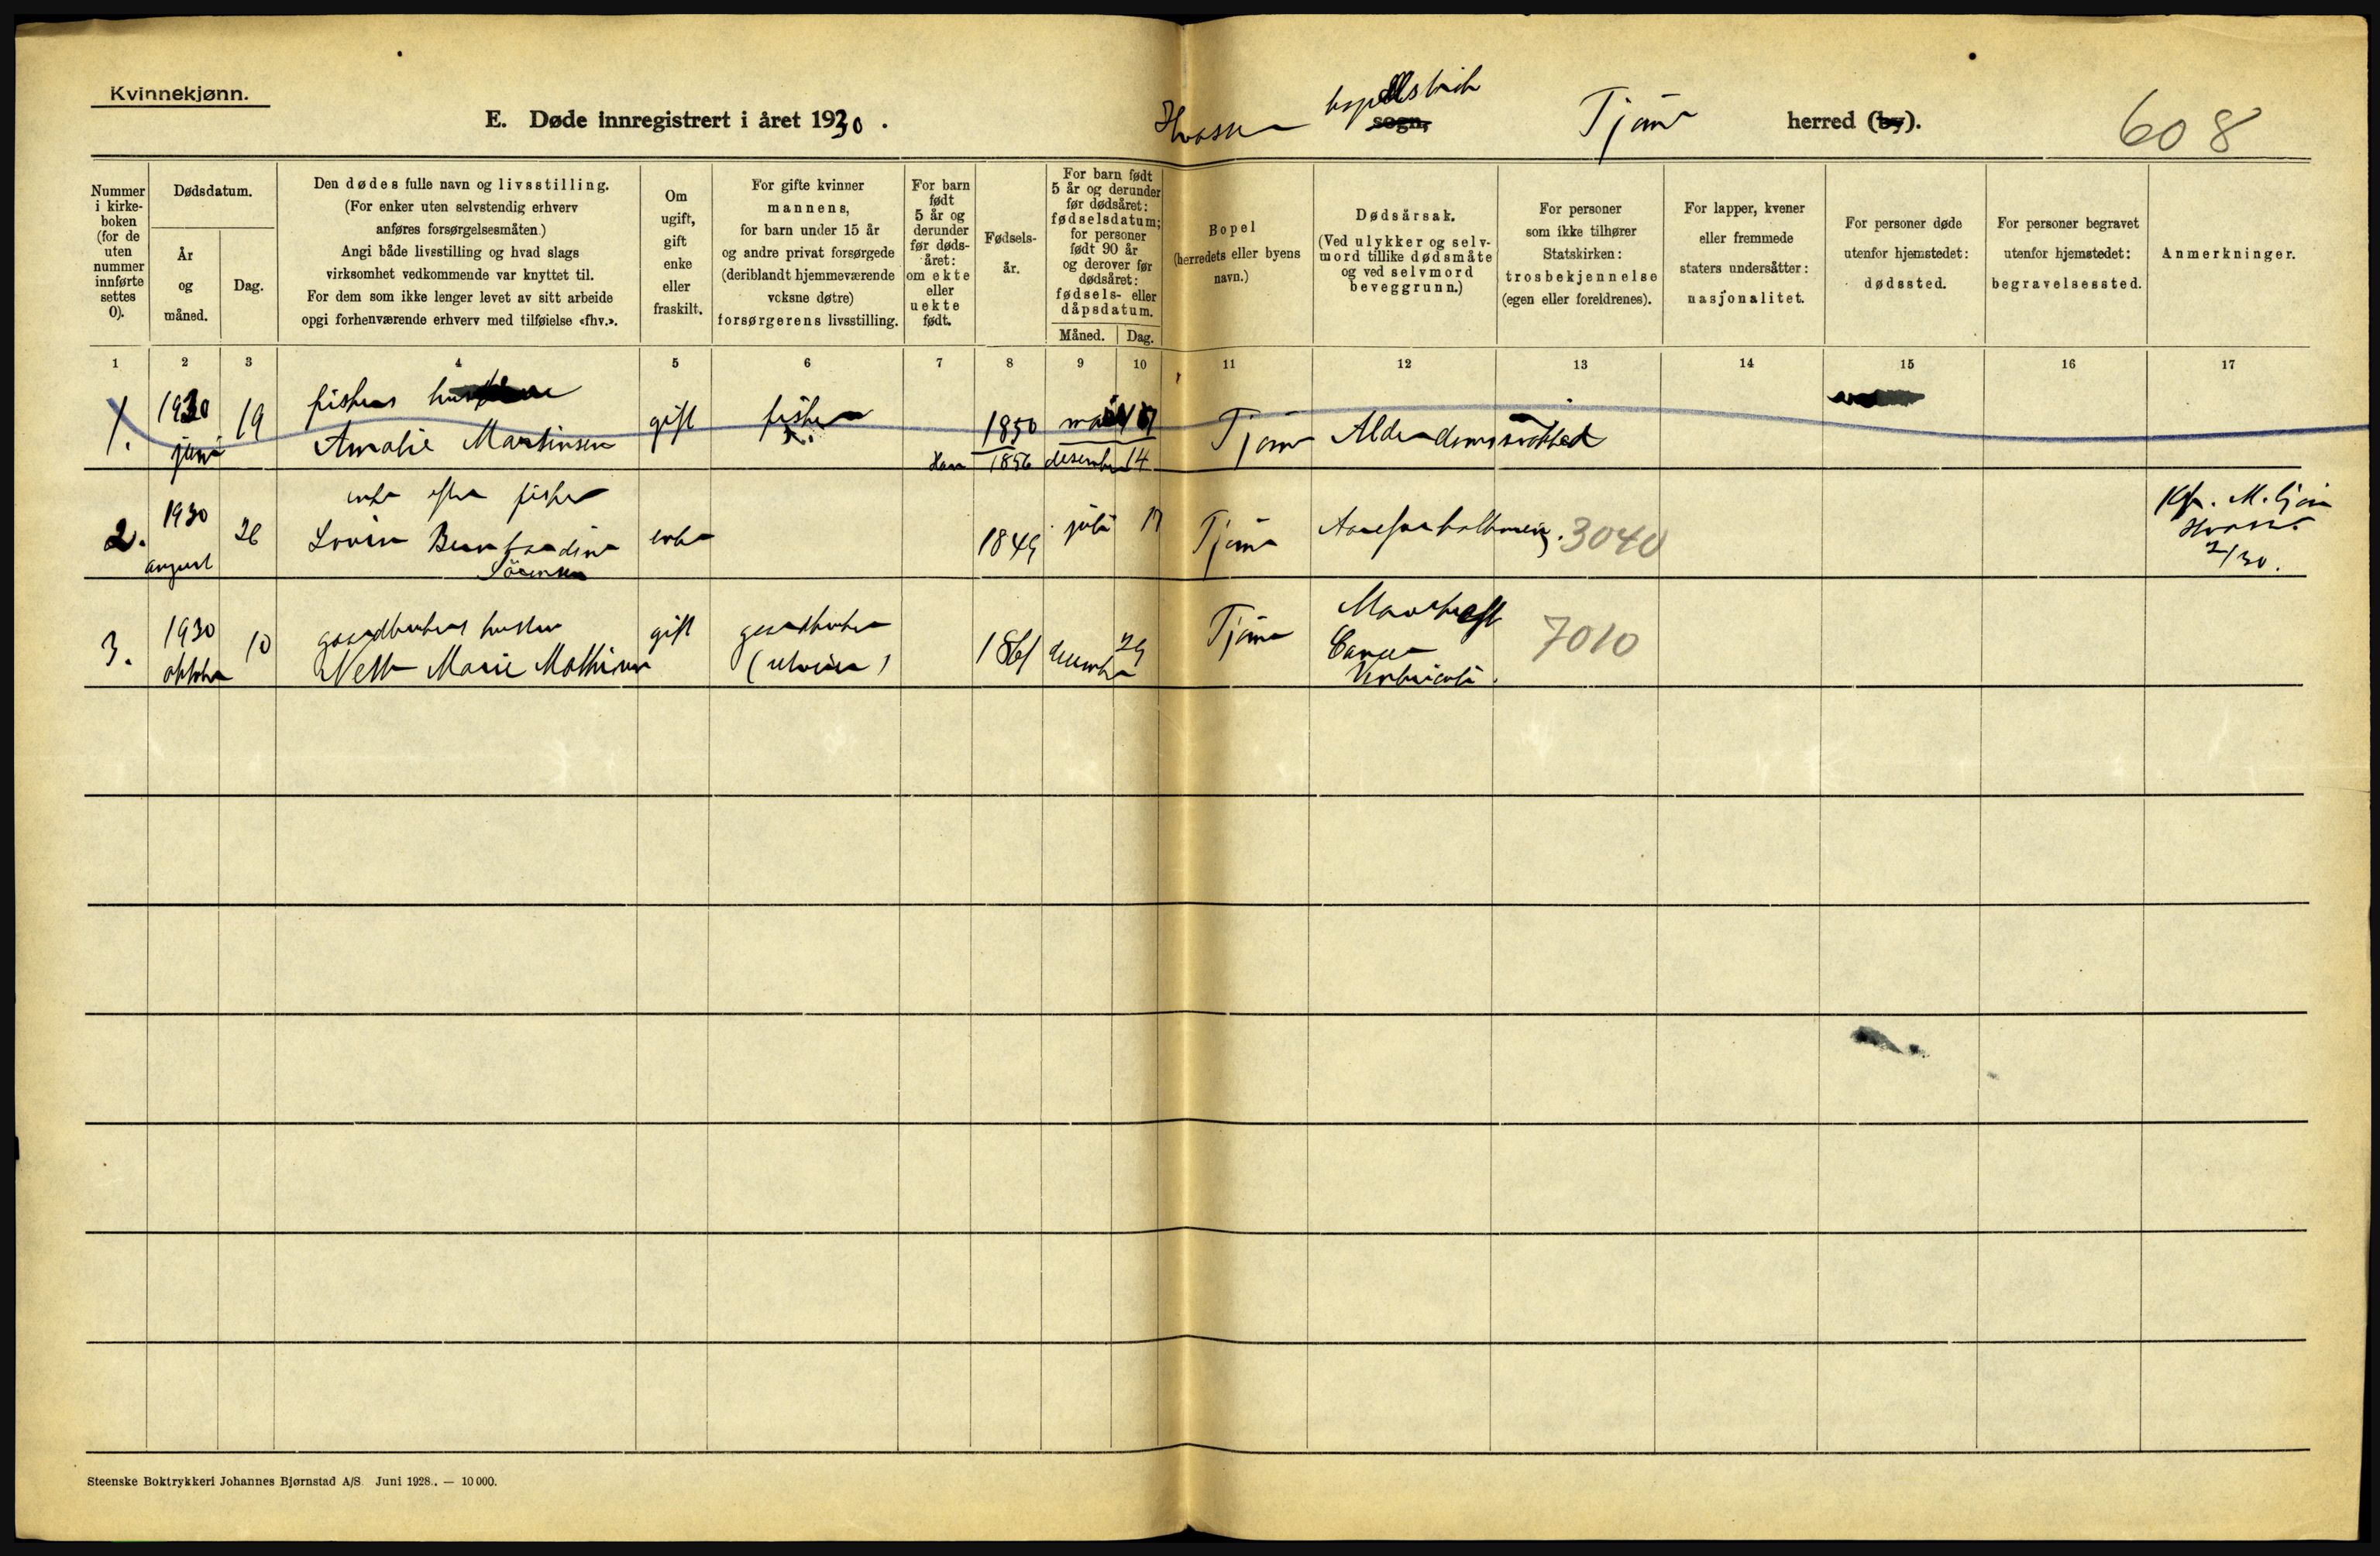 Kvinnekjønn.
E. Døde innregistrert i året 1930.
sogn,
Tjøme herred (by).
608
Nummer i kirkeboken (for de uten nummer innførte settes 0).
Dødsdatum.
År og måned.
Dag.
Den dødes fulle navn og livsstilling.
(For enker uten selvstendig erhverv
anføres forsørgelsesmåten.)
Angi både livsstilling og hvad slags
virksomhet vedkommende var knyttet til.
For dem som ikke lenger levet av sitt arbeide
opgi forhenværende erhverv med tilføielse «fhv.».
Om
ugift,
gift
enke
eller
fraskilt.
For gifte kvinner
mannens,
for barn under 15 år
og andre privat forsørgede
(deriblandt hjemmeværende
voksne døtre)
forsørgerens livsstilling.
For barn
født
5 år og
derunder
før døds-
året:
om ekte
eller
uekte
født.
Fødsels-
år.
For barn født
5 år og derunder
før dødsåret:
fødselsdatum;
for personer
født 90 år
og derover før
dødsåret:
fødsels- eller
dåpsdatum.
Måned.
Dag.
Bopel
(herredets eller byens
navn.)
Dødsårsak.
(Ved ulykker og selv-
mord tillike dødsmåte
og ved selvmord
beveggrunn.)
For personer
som ikke tilhører
Statskirken:
trosbekjennelse
(egen eller foreldrenes).
For lapper, kvener
eller fremmede
staters undersåtter:
nasjonalitet.
For personer døde
utenfor hjemstedet:
dødssted.
For personer begravet
utenfor hjemstedet:
begravelsessted.
Anmerkninger.
1 2 3 4 5 6 7 8 9 10 11 12 13 14 15 16 17
1. 1930 juni 19
fiskers
Amalie Martinsen
gift fisker 1850 mai
1856 desember 14
Tjøme Alderdomssvakhed
2. 1930 august 26
enke efter fisker
Lovise Bernhardine
Sørensen
enke 1849 juli 17 Tjøme 3040
3. 1930 oktober 10
gaardbrukers hustru
Marie Mathisen
gift gaardbruker
1861 december 29 Tjøme
Cancer
Ventriculi.
7010
Steenske Boktrykkeri Johannes Bjørnstad A/S. Juni 1928. — 10 000.